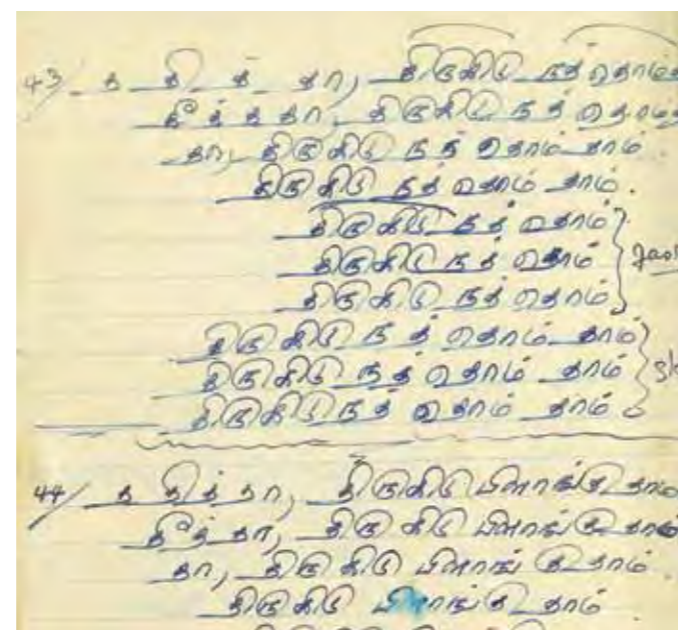 43/ த தி த் தா, திருகிடு நத் தொம்
தீத் தத தா, திருகிடு நத் தொம்
தா, திருகிடு நத் தொம் தாம்.
திருகிடு நத் தொம் தாம்.
திருகிடு நத் தொம்
திருகிடு நத் தொம்
திருகிடு நத் தொம்
திருகிடு நத் தொம் தாம்
திருகிடு நத் தொம் தாம்
திருகிடு நத் தொம் தாம்
44/ த தித் தா, திருகிடு பிளாங்கு தாம்
தீத் தா, திருகிடு பிளாங்கு தாம்
தா, திருகிடு பிளாங்கு தாம்.
திருகிடு பிளாங்கு தாம்